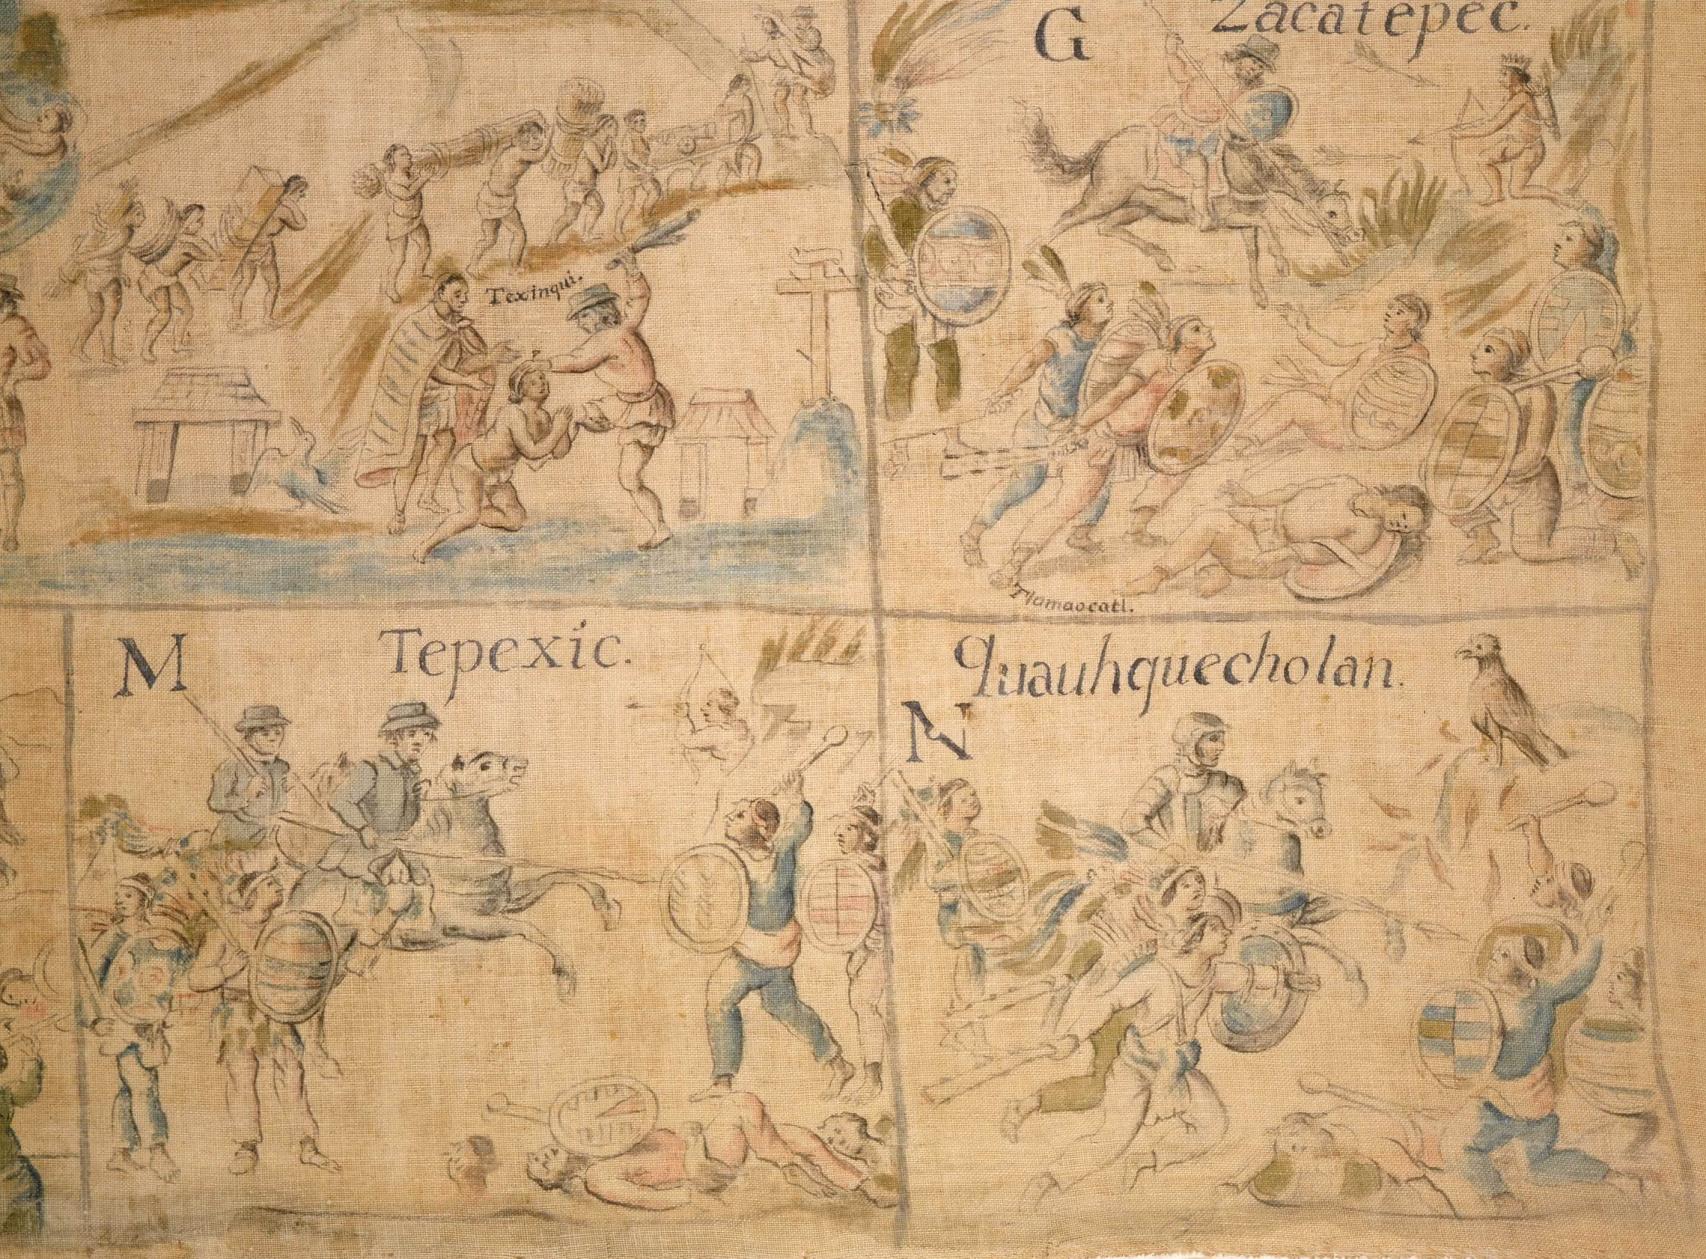 G
Zacatepec.
Texinqui.
Tlamaocatl.
M
Tepexic.
Quauhquecholan.
N